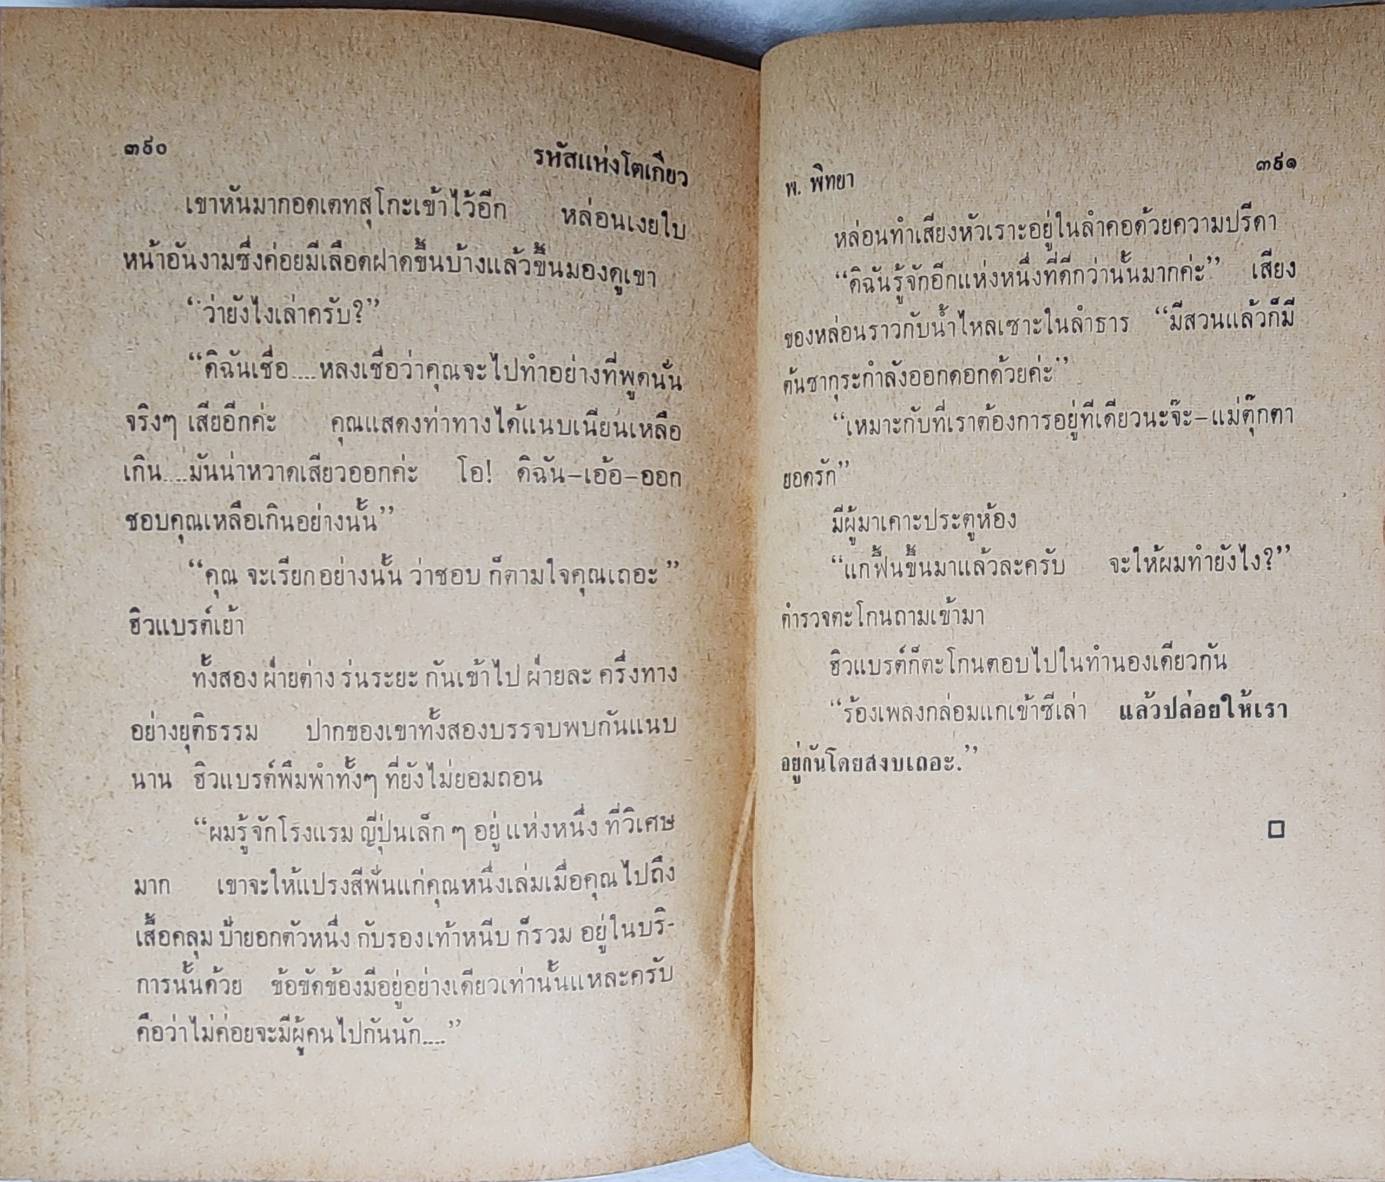 ๓๙๐
รหัสแห่งโตเกียว
เขาหันมากอดเตทสุโกะเข้าไว้อีก หล่อนเงยใบ
หน้าอันงามซึ่งค่อยมีเลือดฝาดขึ้นบ้างแล้วขึ้นมองดูเขา
“ว่ายังไงเล่าครับ?”
“ดิฉันเชื่อ....หลงเชื่อว่าคุณจะไปทำอย่างที่พูดนั่น
จริงๆ เสียอีกค่ะ คุณแสดงท่าทางได้แนบเนียนเหลือ
เกิน....มันน่าหวาดเสียวออกค่ะ โอ! ดิฉัน–เอ้อ–ออก
ชอบคุณเหลือเกินอย่างนั้น”
“คุณ จะเรียกอย่างนั้น ว่าชอบ ก็ตามใจคุณเถอะ”
ฮิวแบรต์เย้า
ทั้งสอง ฝ่ายต่าง ร่นระยะ กันเข้าไป ฝ่ายละ ครึ่งทาง
อย่างยุติธรรม ปากของเขาทั้งสองบรรจบพบกันแนบ
นาน ฮิวแบรต์พึมพำทั้งๆ ที่ยังไม่ยอมถอน
“ผมรู้จักโรงแรม ญี่ปุ่นเล็ก ๆ อยู่ แห่งหนึ่ง ที่วิเศษ
มาก เขาจะให้แปรงสีฟันแก่คุณหนึ่งเล่มเมื่อคุณไปถึง
เสื้อคลุม ป้ายอกตัวหนึ่ง กับรองเท้าหนีบ ก็รวม อยู่ในบริ-
การนั้นด้วย ข้อขัดข้องมีอยู่อย่างเดียวเท่านั้นแหละครับ
คือว่าไม่ค่อยจะมีผู้คนไปกันนัก....”
พ. พิทยา
๓๙๑
หล่อนทำเสียงหัวเราะอยู่ในลำคอด้วยความปรีดา
“ดิฉันรู้จักอีกแห่งหนึ่งที่ดีกว่านั้นมากค่ะ” เสียง
ของหล่อนราวกับน้ำไหลเซาะในลำธาร “มีสวนแล้วก็มี
ต้นซากุระกำลังออกดอกด้วยค่ะ”
“เหมาะกับที่เราต้องการอยู่ทีเดียวนะจ๊ะ–แม่ตุ๊กตา
ยอดรัก”
มีผู้มาเคาะประตูห้อง
“แกฟื้นขึ้นมาแล้วละครับ จะให้ผมทำยังไง?”
ตำรวจตะโกนถามเข้ามา
ฮิวแบรต์ก็ตะโกนตอบไปในทำนองเดียวกัน
“ร้องเพลงกล่อมแกเข้าซีเล่า แล้วปล่อยให้เรา
อยู่กันโดยสงบเถอะ.”